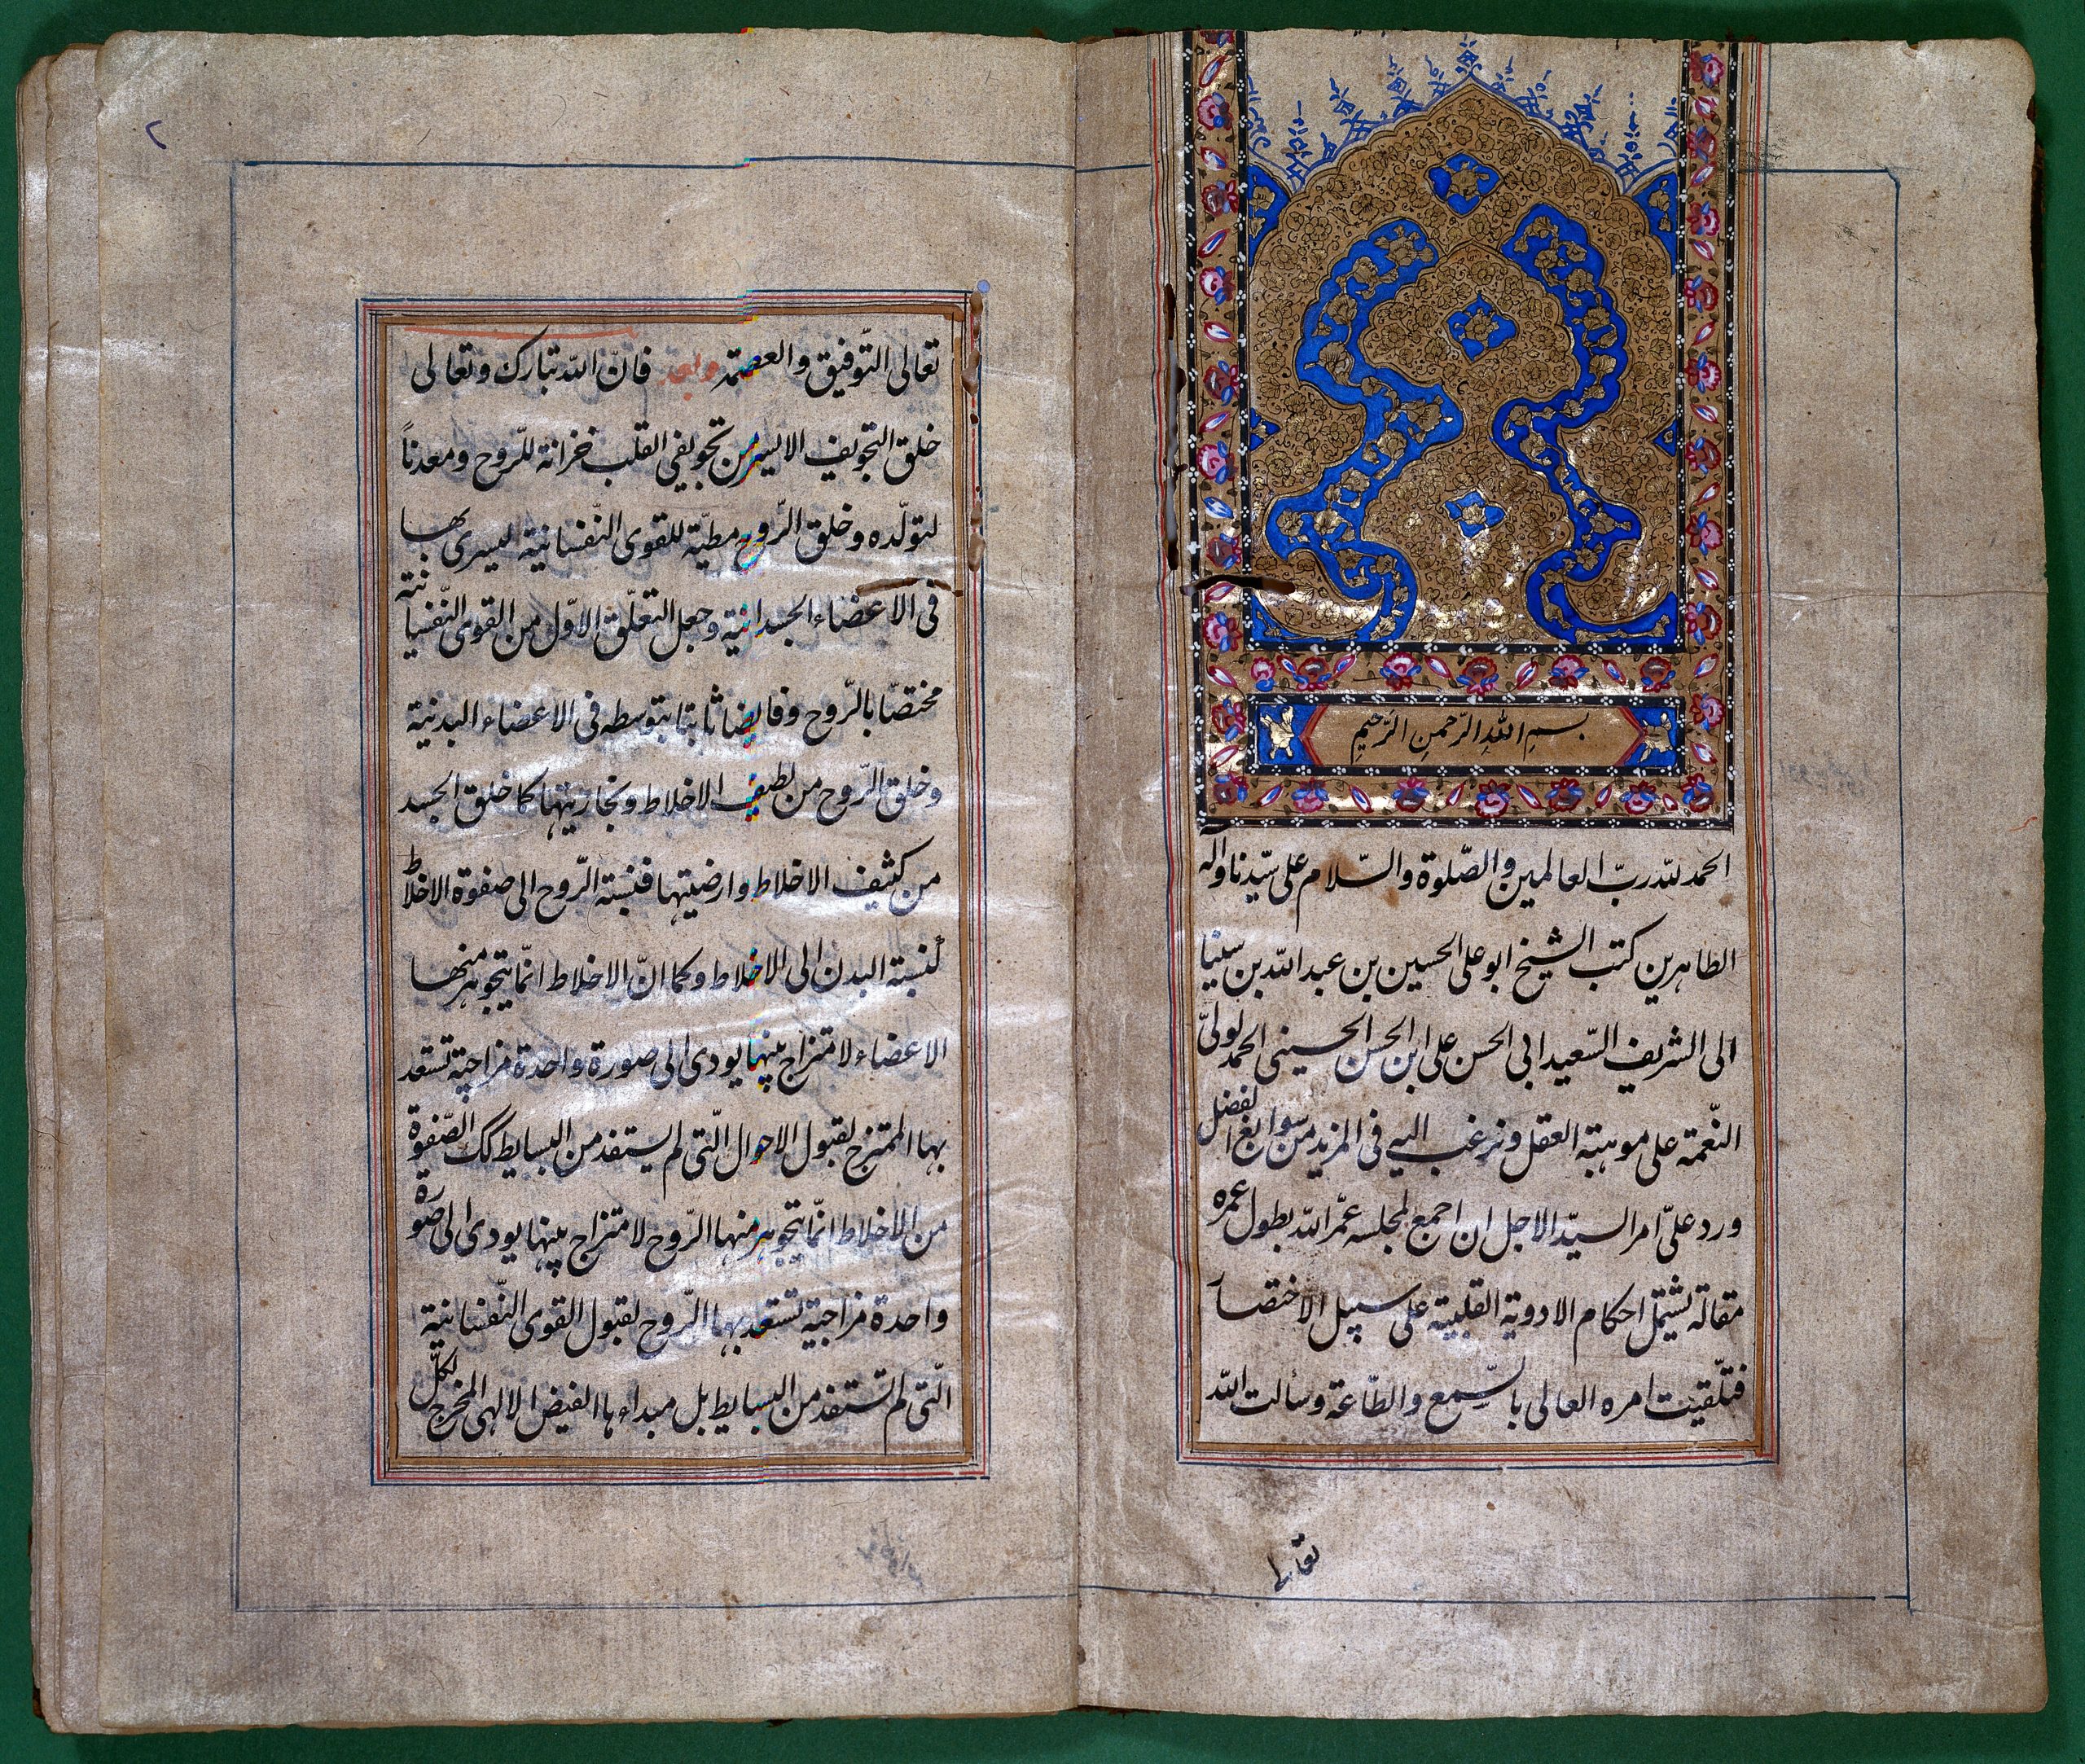 بسم الله الرّحمن الرّحيم
الحمد لله ربّ العالمين والصّلوة والسّلام على سيّدنا وآله
الطاهرين كتب الشيخ ابو على الحسين بن عبد الله بن سينا
الى الشريف السّعيد ابى الحسن على ابن الحسن الحسينى الحمد لولىّ
النّعمة على موهبة العقل ونرغب اليه فى المزيد من سوابغ الفضل
ورد علىّ امر السيّد الاجل ان اجمع لمجلسه عمّر الله بطول عمره
مقالة يشتمل احكام الادوية القلبية على سبيل الاختصار
فتلقيت امره العالى بالسّمع والطّاعة وسألت الله
تعالى
٢
تعالى التّوفيق والعصمة وبعد فانّ الله تبارك وتعالى
خلق التجويف الايسر من تجويفى القلب خزانة للرّوح ومعدناً
لتولّده وخلق الرّوح مطيّة للقوى النّفسانية ليسرى بها
فى الاعضاء الجسدانية وجعل التعلّق الاوّل من القوى النّفسانية
مختصّا بالرّوح وفايضا ثابتا بتوسطه فى الاعضاء البدنية
وخلق الرّوح من لطيف الاخلاط وبخاريتها كما خلق الجسد
من كثيف الاخلاط وارضيتها فنسبة الرّوح الى صفوة الاخلاط
كنسبة البدن الى الاخلاط وكما انّ الاخلاط انّما يتجوهر منها
الاعضاء لامتزاج بينها يودى الى صورة واحدة مزاجية تستعد
بها الممتزج لقبول الاحوال الّتى لم يستفد من البسايط كك الصّفوة
من الاخلاط انّما يتجوهر منها الرّوح لامتزاج بينها يودى الى صورة
واحدة مزاجية تستعد بها الرّوح لقبول القوى النّفسانية
الّتى لم تستفد من البسايط بل مبداءها الفيض الالهى المخرج لكلّ